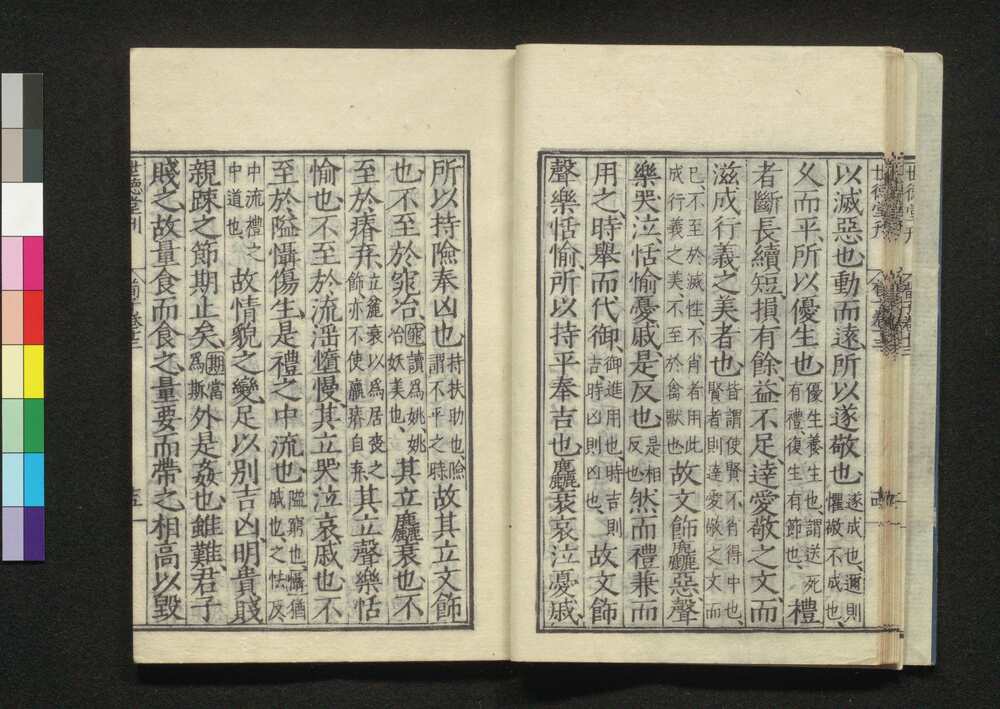 以滅惡也、動而遠、所以遂敬也、遂成也、邇則
懼敬不成也、
久而平、所以優生也、優生養生也、謂送死
有禮、復生有節也、禮
者斷長續短、損有餘益不足、達愛敬之文、而
滋成行義之美者也、皆謂使賢不肖得中也、
賢者則達愛敬之文而
已、不至於滅性、不肖者用此
成行義之美、不至於禽獸也、故文飾麤惡聲
樂哭泣、恬愉憂戚是反也、是相
反也、然而禮兼而
用之、時舉而代御、御進用也、時吉則
吉時凶則凶也、故文飾
聲樂恬愉、所以持平奉吉也、麤衰哀泣憂戚、
所以持險奉凶也、持扶助也、險
謂不平之時故其立文飾
也、不至於窕冶、窕讀爲姚、姚
冶妖美也、其立麤衰也、不
至於瘠弃、立麤衰以爲居喪之
飾、亦不使羸瘠自弃其立聲樂恬
愉也、不至於流淫惰慢、其立哭泣哀戚也、不
至於隘懾傷生、是禮之中流也、隘窮也、懾猶
戚也、之怯反
中流禮之
中道也、故情貌之變、足以別吉凶、明貴賤
親踈之節、期止矣、期當
爲斯外是姦也、雖難君子
賤之、故量食而食之、量要而帶之、相高以毀
世德堂刊